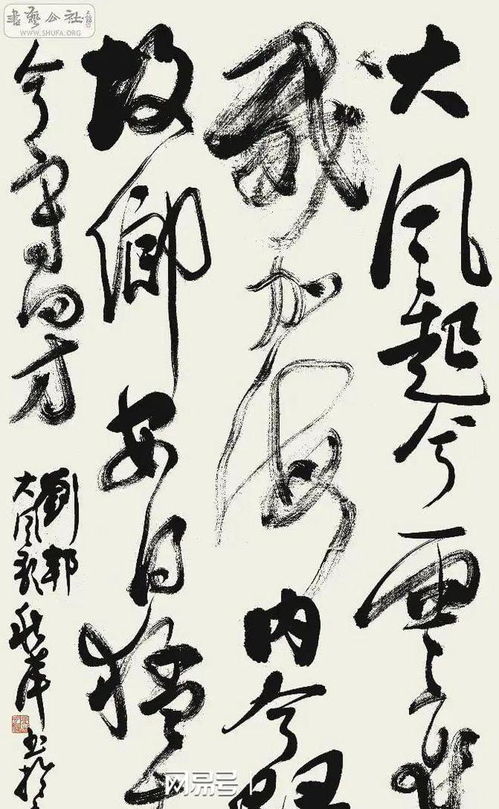 書藝公社
WWW.SHUFA.ORG
大风起兮雲飛
威加海内兮歸
故鄉安得猛士
兮守四方
劉邦
大风歌
书於
网易号